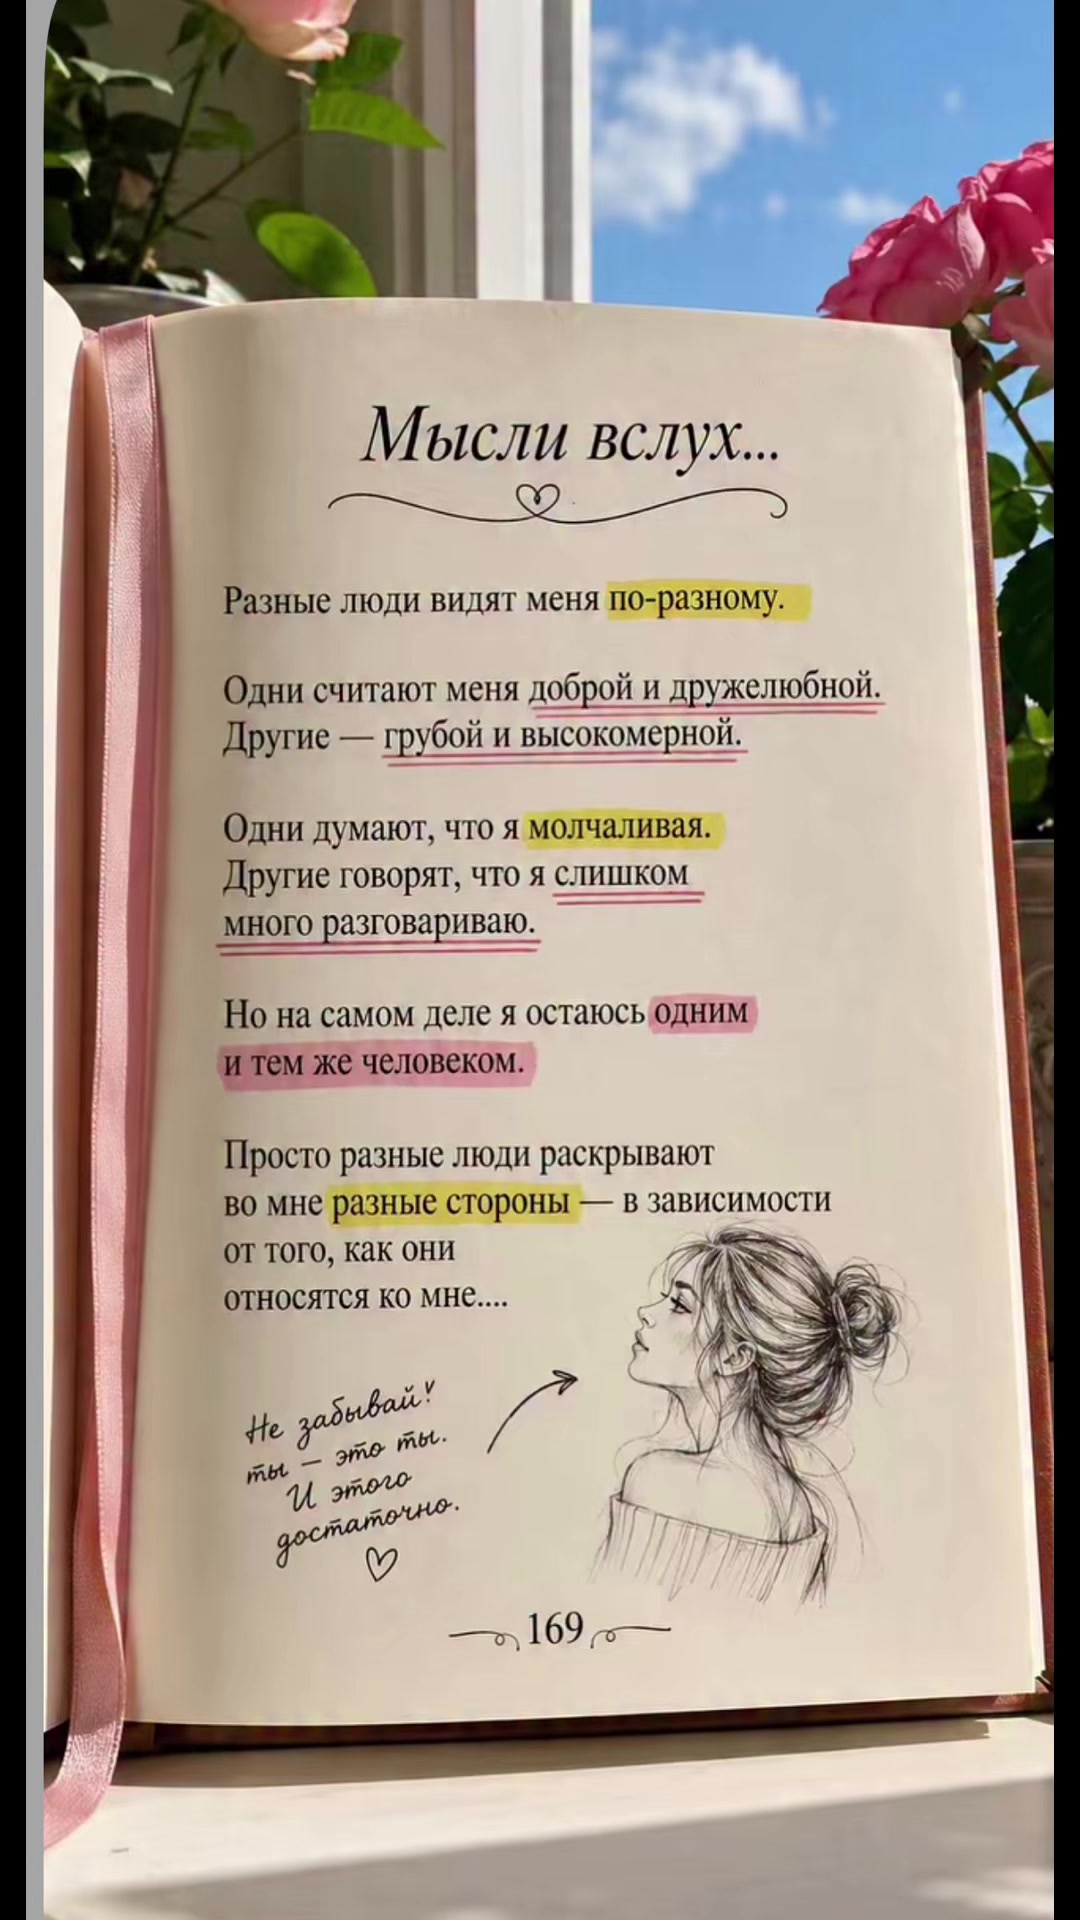 Мысли вслух...
Разные люди видят меня по-разному.
Одни считают меня доброй и дружелюбной.
Другие — грубой и высокомерной.
Одни думают, что я молчаливая.
Другие говорят, что я слишком
много разговариваю.
Но на самом деле я остаюсь одним
и тем же человеком.
Просто разные люди раскрывают
во мне разные стороны — в зависимости
от того, как они
относятся ко мне....
Не забывай!
ты — это ты.
И этого
достаточно.
169